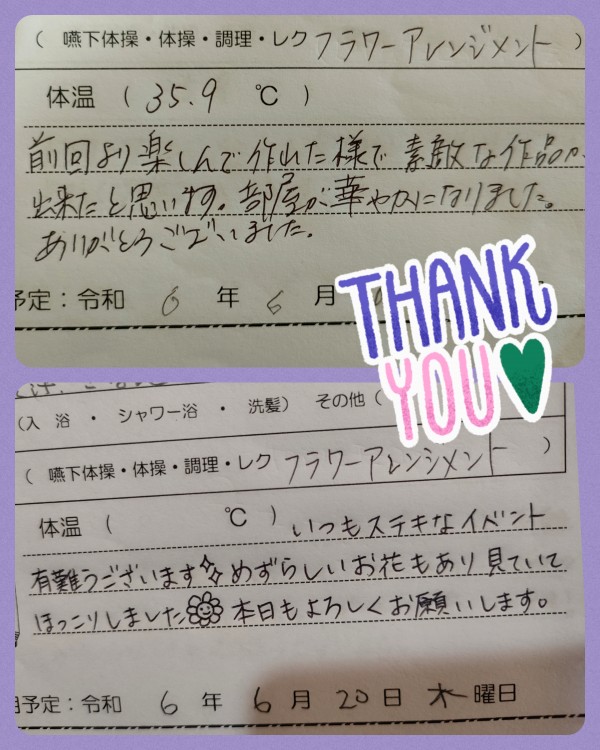 ( 嚥下体操・体操・調理・レク フラワーアレンジメント )
体温 ( 35.9 ℃ )
前回より楽しんで作れた様で 素敵な作品が
出来たと思います。部屋が華やかになりました。
ありがとうございました。
予定：令和 6 年 6 月
THANK
YOU
(入 浴 ・ シャワー浴 ・ 洗髪) その他 (
( 嚥下体操・体操・調理・レク フラワーアレンジメント )
体温 ( ℃ ) いつもステキなイベント
有難うございます めずらしいお花もあり 見ていて
ほっこりしました 本日もよろしくお願いします。
予定：令和 6 年 6 月 20 日 木 曜日